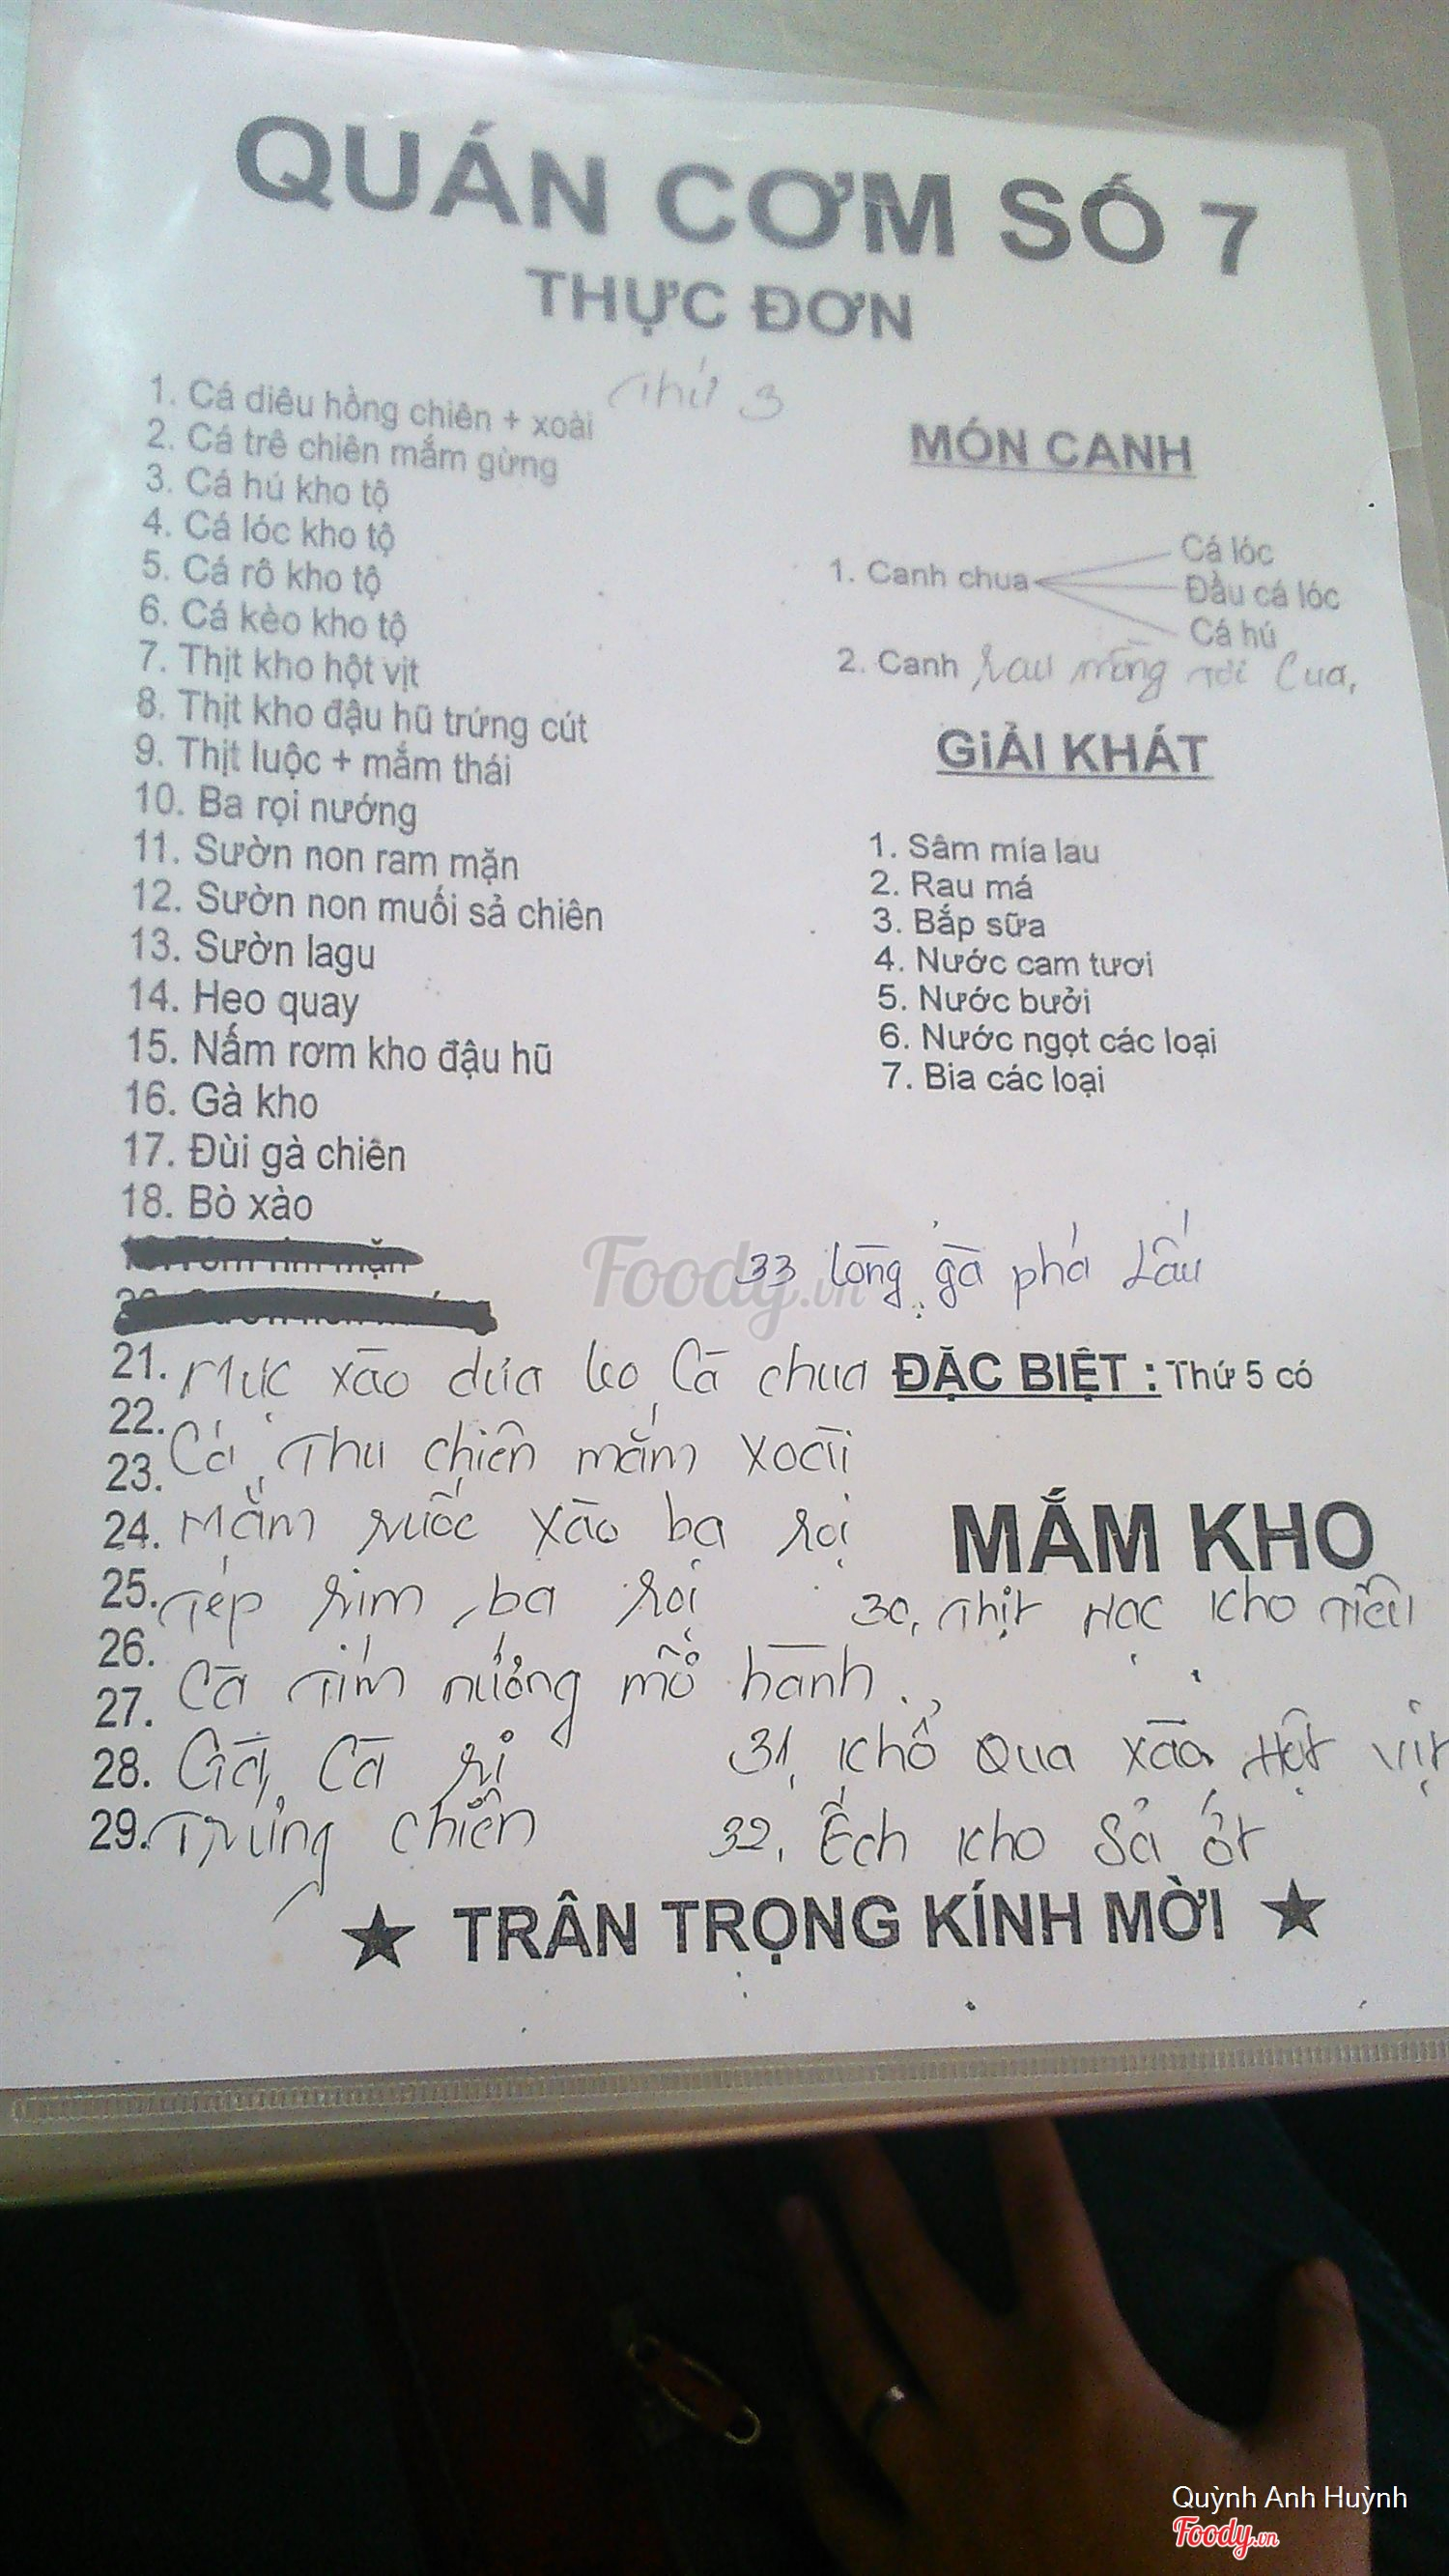 QUÁN CƠM SỐ 7
THỰC ĐƠN
Thứ 3
1. Cá diêu hồng chiên + xoài
2. Cá trê chiên mắm gừng
3. Cá hú kho tộ
4. Cá lóc kho tộ
5. Cá rô kho tộ
6. Cá kèo kho tộ
7. Thịt kho hột vịt
8. Thịt kho đậu hũ trứng cút
9. Thịt luộc + mắm thái
10. Ba rọi nướng
11. Sườn non ram mặn
12. Sườn non muối sả chiên
13. Sườn lagu
14. Heo quay
15. Nấm rơm kho đậu hũ
16. Gà kho
17. Đùi gà chiên
18. Bò xào
21. Mực xào dưa leo Cà chua
22.
23. Cá Thu chiên mắm xoài
24. Mắm ruốc xào ba rọi
25. Tép rim ba rọi
26.
27. Cà Tím nướng mỡ hành
28. Gà Cà ri
29. Trứng chiên
MÓN CANH
1. Canh chua
Cá lóc
Đầu cá lóc
Cá hú
2. Canh rau mồng tơi Cua,
GIẢI KHÁT
1. Sâm mía lau
2. Rau má
3. Bắp sữa
4. Nước cam tươi
5. Nước bưởi
6. Nước ngọt các loại
7. Bia các loại
33 lòng gà phá lấu
ĐẶC BIỆT : Thứ 5 có
MẮM KHO
30, Thịt Nạc kho Tiêu
31, Khổ Qua xào Hột vịt
32, Ếch kho Sả ớt
★ TRÂN TRỌNG KÍNH MỜI ★
Foody.vn
Quỳnh Anh Huỳnh
Foody.vn